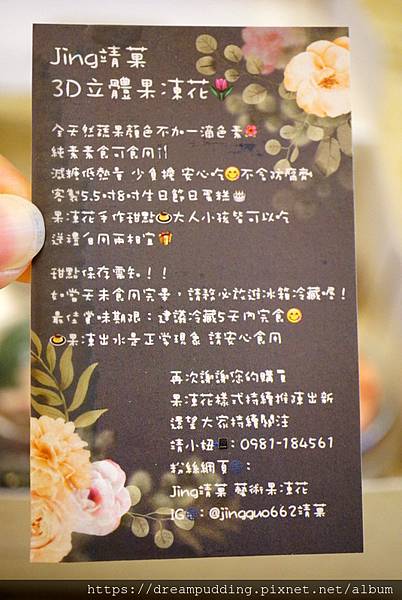 Jing靖菓
3D立體果凍花🌷
全天然蔬果顏色不加一滴色素🌺
純素素食可食用
減糖低熱量 少負擔 安心吃😋不含防腐劑
客製5.5吋8吋生日節日蛋糕🎂
果凍花手作甜點🍮大人小孩皆可以吃
送禮自用兩相宜🎁
甜點保存需知！！
如當天未食用完畢，請務必放進冰箱冷藏喔！
最佳賞味期限：建議冷藏5天內完食😋
🍮果凍出水是正常現象 請安心食用
再次謝謝您的購買
果凍花樣式持續推陳出新
還望大家持續關注
靖小妞📱：0981-184561
粉絲網頁🌐：
Jing靖菓 藝術果凍花
IG🌐：@jingguo662靖菓
https://dreampudding.pixnet.net/album